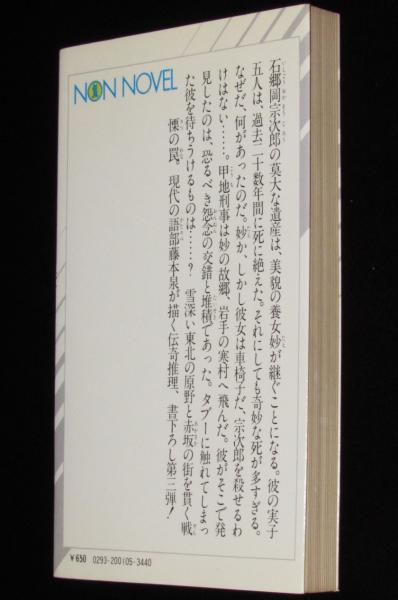 NON NOVEL
石郷岡宗次郎の莫大な遺産は、美貌の養女妙が継ぐことになる。彼の実子
五人は、過去二十数年間に死に絶えた。それにしても奇妙な死が多すぎる。
なぜだ、何があったのだ。妙か、しかし彼女は車椅子だ、宗次郎を殺せるわ
けはない……。甲地刑事は妙の故郷、岩手の寒村へ飛んだ。彼がそこで発
見したのは、恐るべき怨念の交錯と堆積であった。タブーに触れてしまっ
た彼を待ちうけるものは……？　雪深い東北の原野と赤坂の街を貫く戦
慄の罠。現代の語部藤本泉が描く伝奇推理、書下ろし第三弾！
￥650 0293-200105-3440